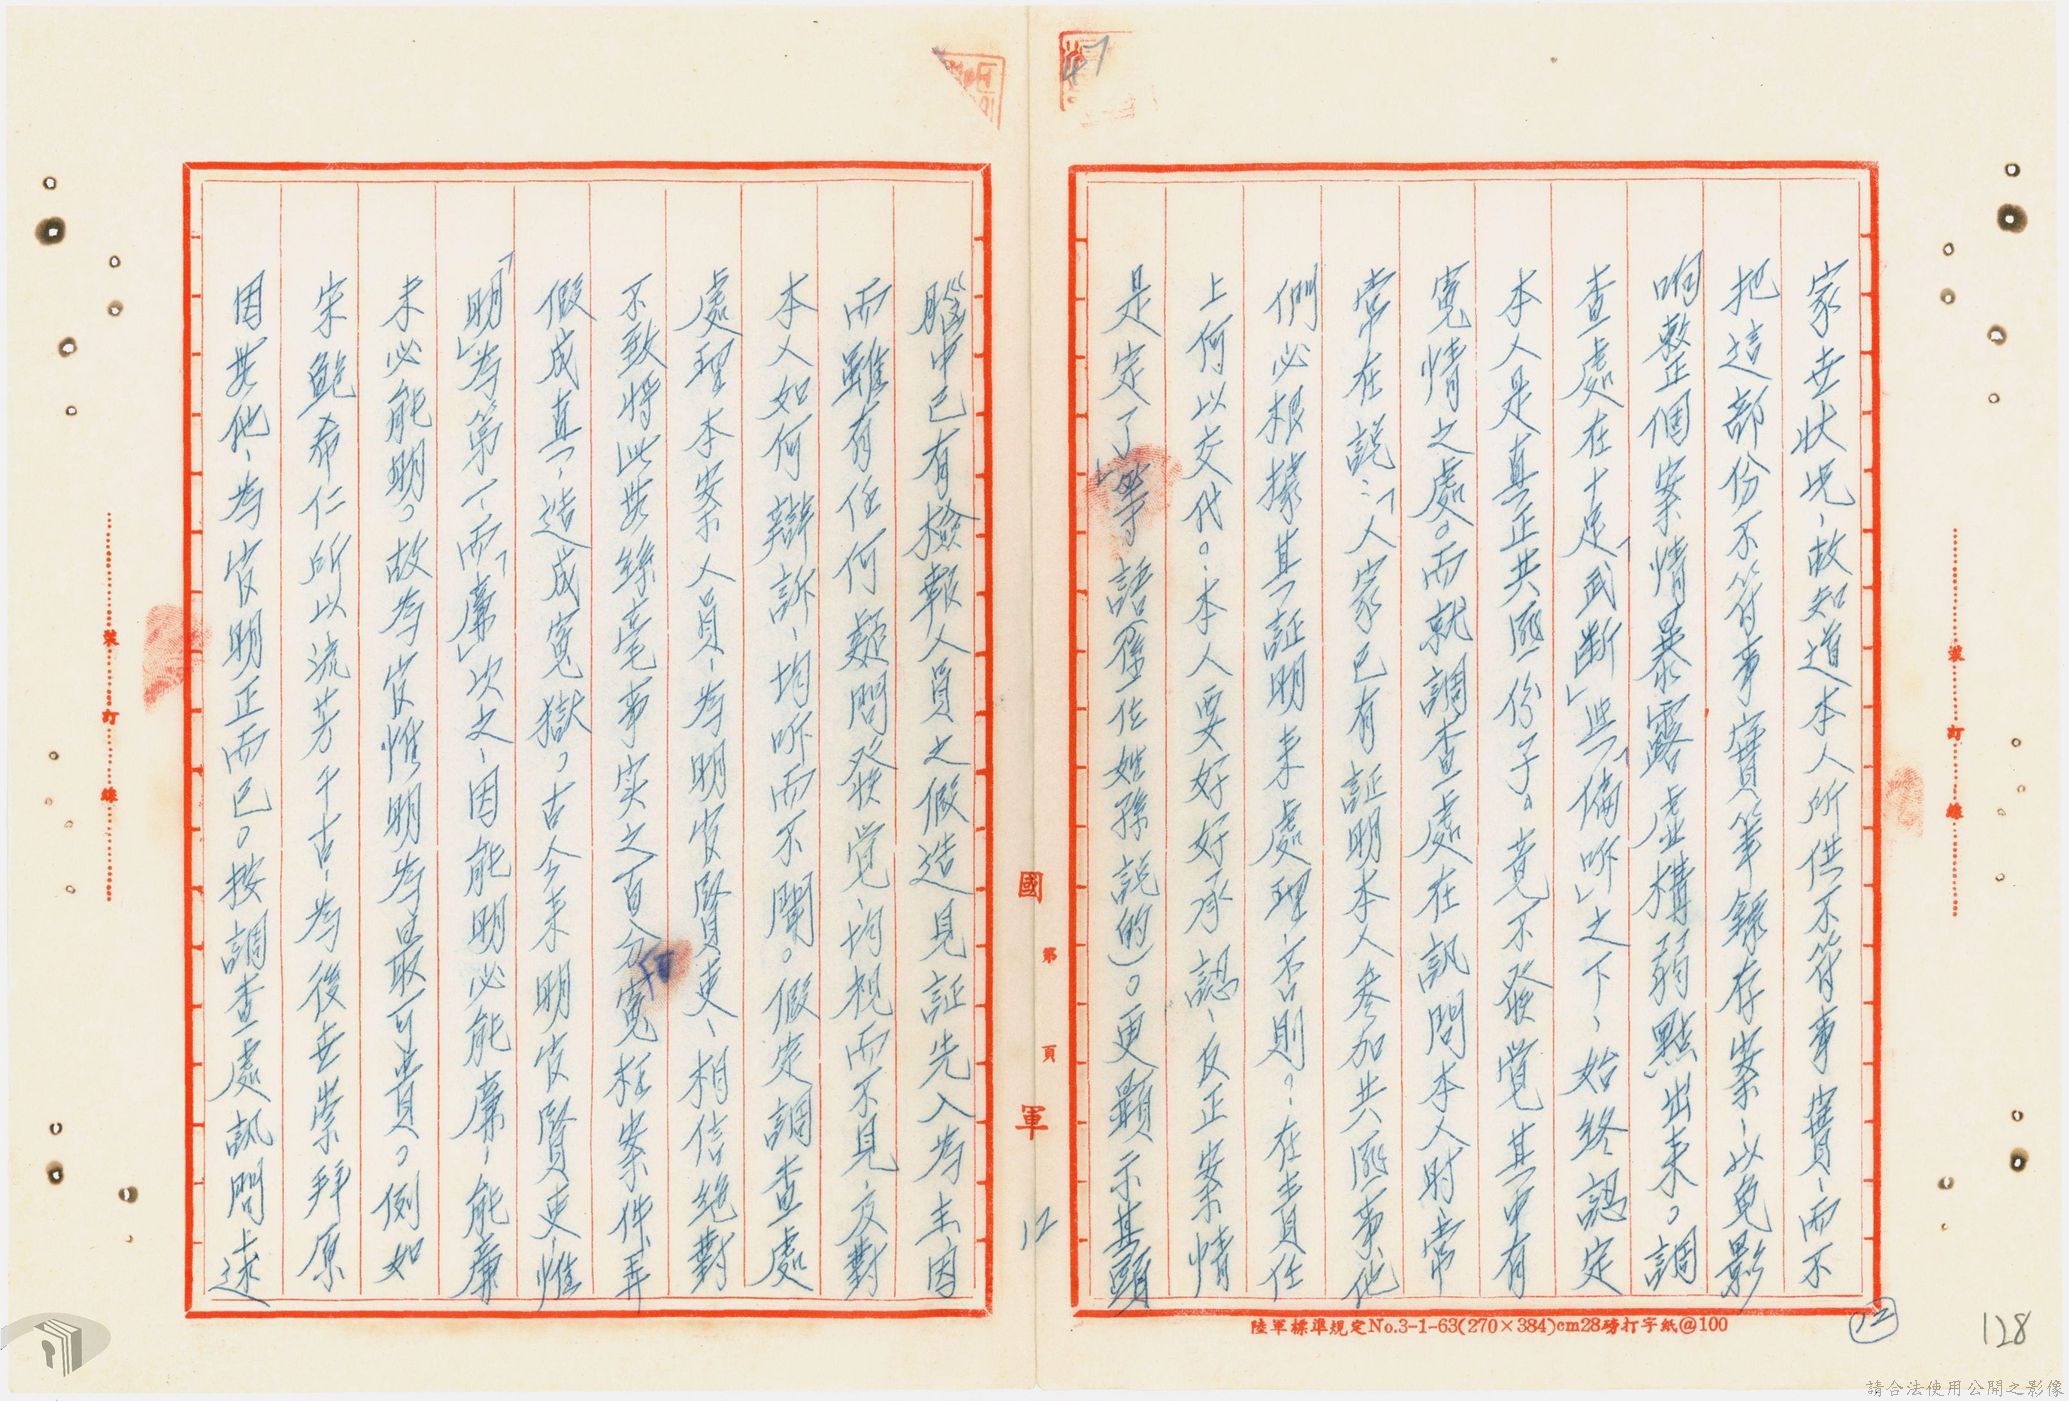 家世狀況、故知道本人所供不符事實、而不
把這部份不符事實筆錄存案、以免影
响整個案情暴露虛構弱點出來。調
查處在十足「武斷」與「偏听」之下、始終認定
本人是真正共匪份子。竟不發覺其中有
寃情之處。而就調查處在訊問本人時常
常在說：「人家已有証明本人參加共匪事他
們必根據其証明來處理、否則。在責任
上何以交代。本人要好好承認、反正案情
是定了」等語(孫一任姓孫說的)。更顯示其頭
腦中已有檢報人員之假造見証先入為主因
而雖有任何疑問發覚、均視而不見、反對
本人如何辯訴、均听而不聞。假定調查處
處理本案人員、為明官賢吏、相信絕對
不致將此與絲毫事实之百分百寃枉案件弄
假成真、造成寃獄。古今來明官賢吏惟
「明」為第一、而「廉」次之、因能明必能廉、能廉
未必能明。故為官惟明為最可貴。例如
宋鮑希仁所以流芳千古、為後世崇拜原
因無他、為官明正而已。按調查處訊問上述
國
第
頁
軍
12
裝
訂
線
裝
訂
線
47
陸軍標準規定No.3-1-63(270×384)cm28磅打字紙@100
12
128
請合法使用公開之影像